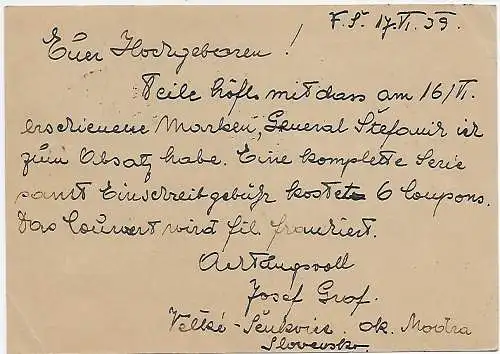 F.S. 17.VI.39.
Euer Hochgebooren!
Teile höfls mit dass am 16/VI.
erschienene Marken, General Štefanik ich
zum Absatz habe. Eine komplette Serie
samt Einschreibgebühr kostet 6 Coupons.
Das Couvert wird fil. frankiert.
Achtungsvoll
Josef Graf.
Velké-Šenkvice. ok. Modra
Slovensko